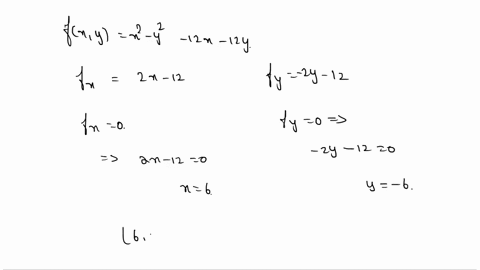 f(x,y) = x² - y² - 12x - 12y.
fx = 2x - 12
fy = -2y - 12
fx = 0.
fy = 0 =>
=> 2x - 12 = 0
-2y - 12 = 0
x = 6.
y = -6.
(6,